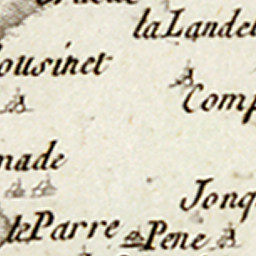 la Lande
ousinet
Comp
made
Jonq
le Parre
Pene